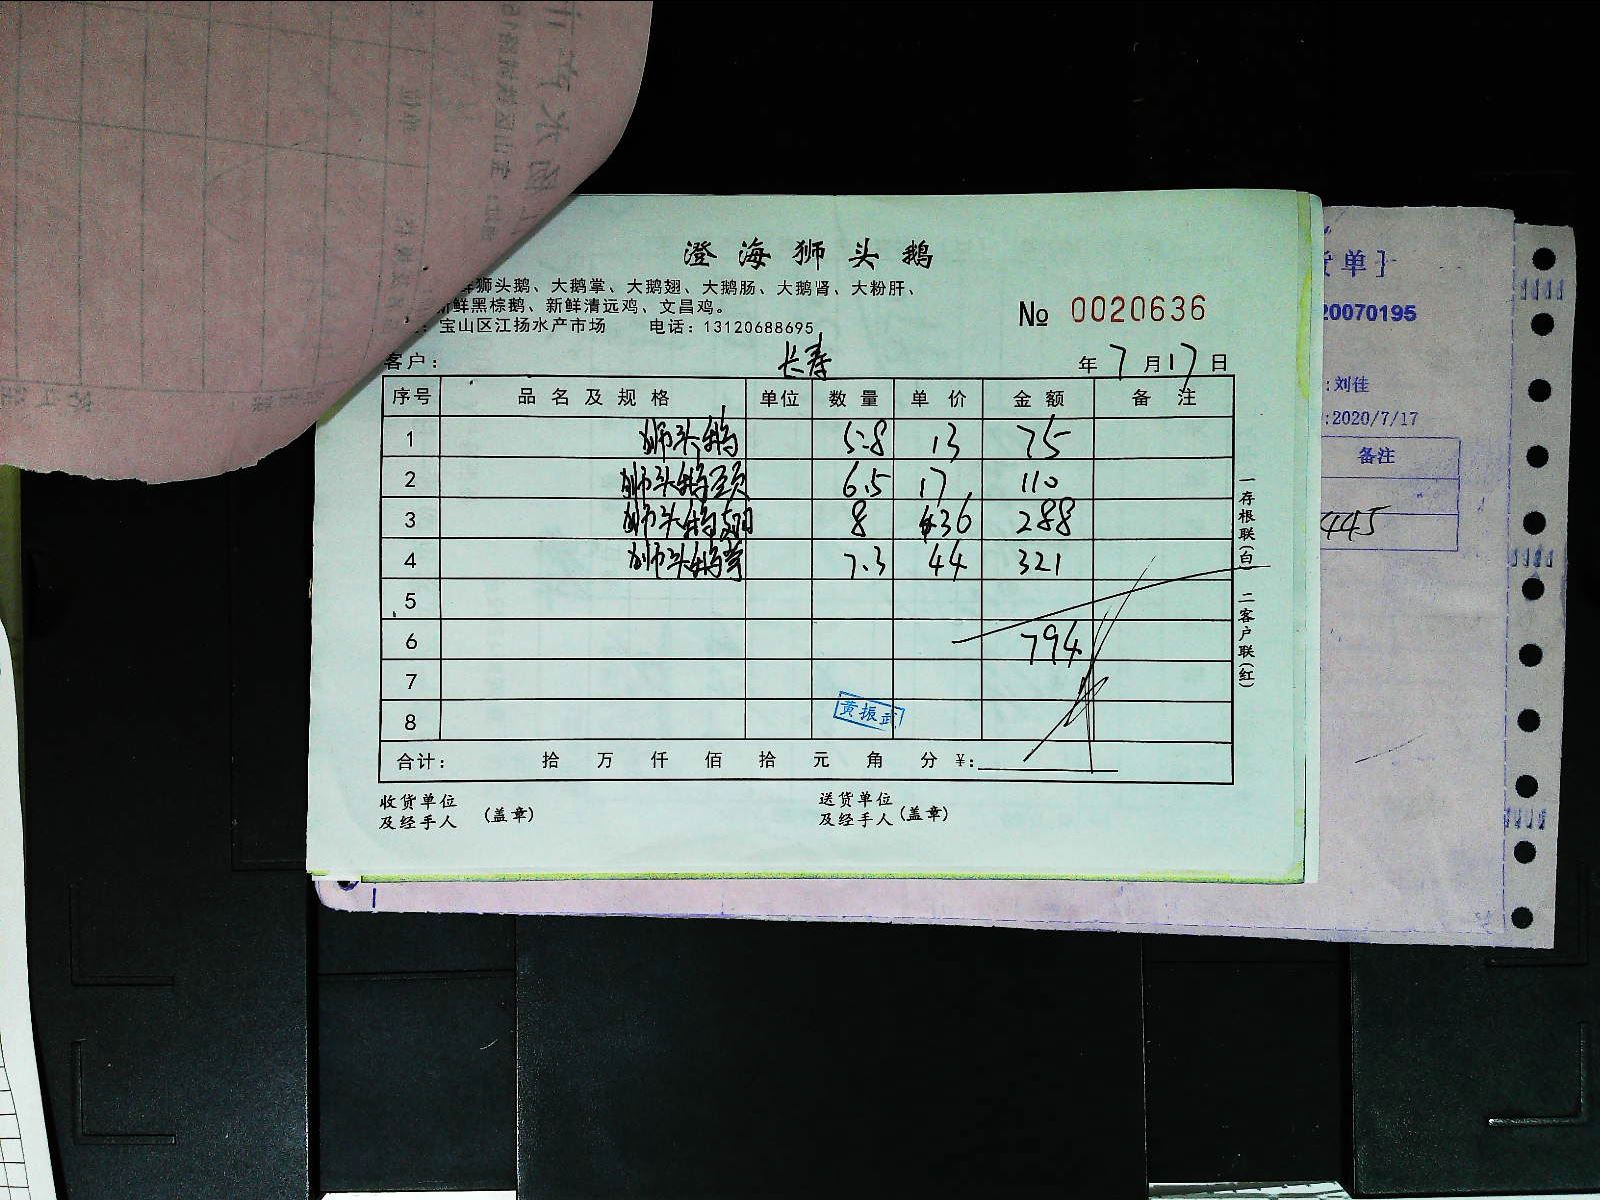 澄海狮头鹅
鲜狮头鹅、大鹅掌、大鹅翅、大鹅肠、大鹅肾、大粉肝、
新鲜黑棕鹅、新鲜清远鸡、文昌鸡。
宝山区江扬水产市场 电话：13120688695
№ 0020636
客户： 长寿 年 7 月 17 日
序号 品名及规格 单位 数量 单价 金额 备注
1 狮头鹅 5.8 13 75
2 狮头鹅颈 6.5 17 110
3 狮头鹅翅 8 36 288
4 狮头鹅掌 7.3 44 321
5
6 794
7
8
黄振武
合计： 拾 万 仟 佰 拾 元 角 分 ¥：
收货单位
及经手人 (盖章)
送货单位
及经手人 (盖章)
一存根联(白) 二客户联(红)
货单】
20070195
:刘佳
:2020/7/17
备注
445